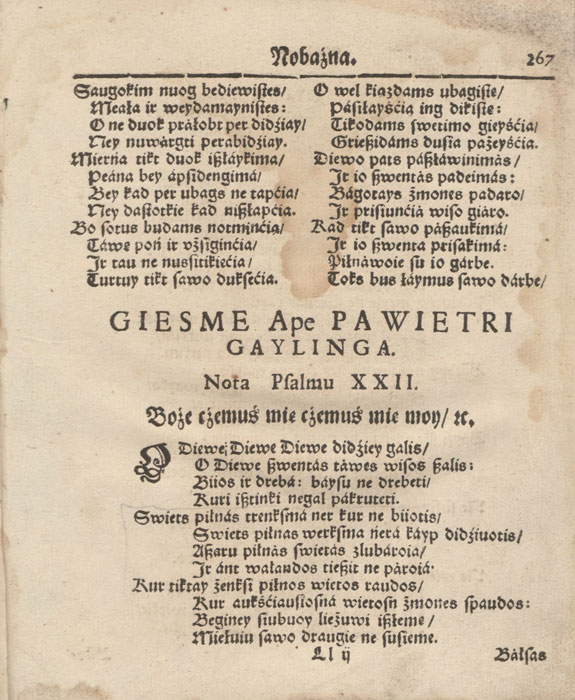 Nobażna. 267
Saugokim nuog bediewistes/
Meała ir weydamaynistes:
O ne duok prałobt per didżiay/
Ney nuwargti perabidżiay.
Mierną tikt duok ißłaykima/
Peáną bey ápsidengimá/
Bey kad per ubags ne tapćia/
Ney dastotkie kad nißłapćia.
Bo sotus budams notminćia/
Táwe poń ir vżsiginćia/
Jr tau ne nussitikiećia/
Turtuy tikt sawo duksećia.
O wel kiazdams ubagiste/
Pásiłayśćia ing dikiste:
Tikodams swetimo gieyśćia/
Grießidáms dusia pażeyśćia.
Diewo pats páßławinimás/
Jr io ßwentás padeimás:
Bágotays żmones padaro/
Jr prisiunćia wiso giáro.
Kad tikt sawo páßaukimá/
Jr io ßwenta prisakimá:
Piłnáwoie su io gárbe.
Toks bus łáymus sawo dárbe/
GIESME Ape PAWIETRI
GAYLINGA.
Nota Psalmu XXII.
Boże cżemuś mie cżemuś mie moy/ ꝛc.
O Diewe, Diewe Diewe didżiey galis/
O Diewe ßwentás táwes wisos ßalis:
Biios ir drebá: báysu ne drebeti/
Kuri ißtinki negal pákruteti.
Swiets piłnás trenksmá ner kur ne biiotis/
Swiets piłnas werksmá ńerá káyp didżiuotis/
Aßaru piłnás swietás zlubároia/
Jr ánt wałaudos tießit ne pároiá.
Kur tiktay żenksi piłnos wietos raudos/
Kur aukśćiausiosná wietosn żmones spaudos:
Beginey siubuoy lieżuwi ißleme/
Miełuiu sawo draugie ne susieme.
Ll ij Báłsas